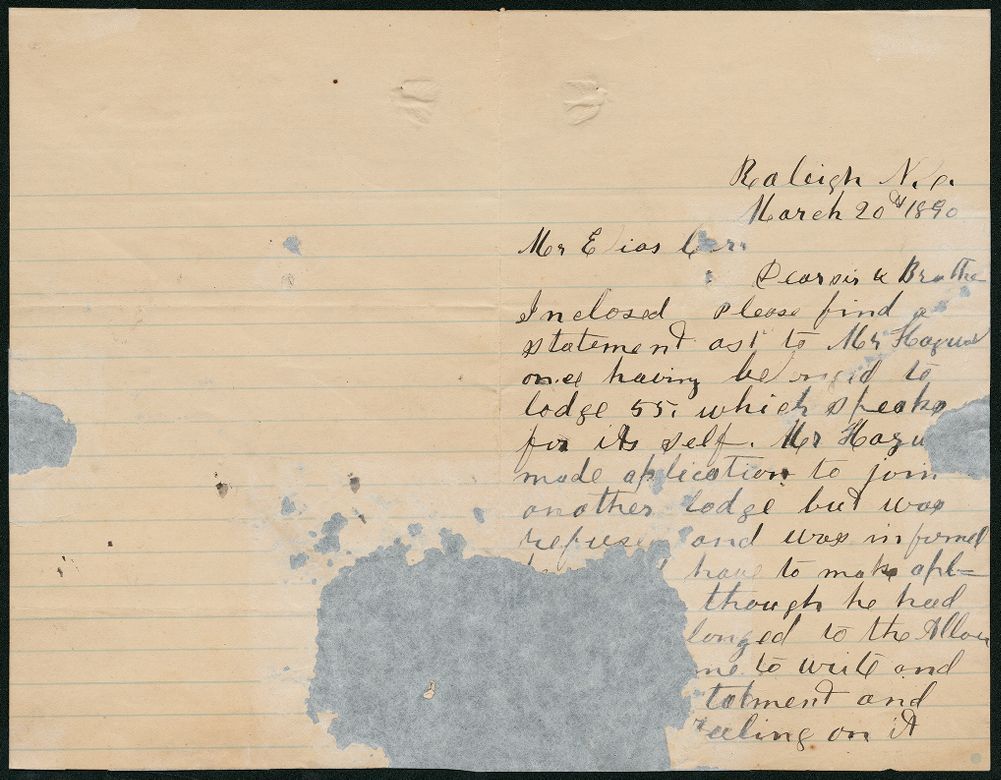 Raleigh N.C.
March 20th 1890
Mr Elias Carr
Dear sir & Brothe
Inclosed please find a
statement ast to Mr Hague
once having belonged to
lodge 55. which speaks
for its self. Mr Hagu
made aplication to join
another lodge but was
refused and was informed
have to make apl=
though he had
longed to the Allian
me to write and
tatment and
ruling on it